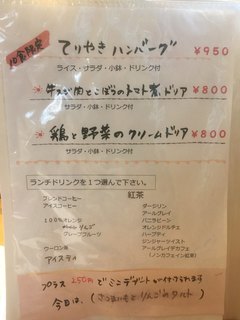 10食限定
てりやきハンバーグ ¥950
ライス・サラダ・小鉢・ドリンク付
牛スジ肉とごぼうのトマト煮ドリア ¥800
サラダ・小鉢・ドリンク付
鶏と野菜のクリームドリア ¥800
サラダ・小鉢・ドリンク付
ランチドリンクを1つ選んで下さい。
ブレンドコーヒー 紅茶
アイスコーヒー ダージリン
アールグレイ
100%オレンジ バニラビーン
りんご オレンジドルチェ
グレープフルーツ ハーブティ
ジンジャーツイスト
ウーロン茶 アールグレイデカフェ
アイスティ (ノンカフェイン紅茶)
プラス250円でミニデザートが付けられます
今日は、(さつまいもとりんごのタルト)